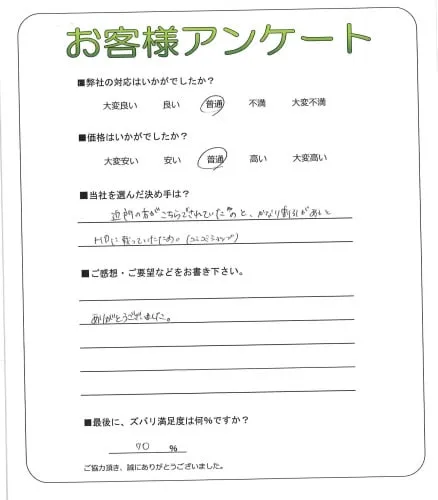 お客様アンケート
■弊社の対応はいかがでしたか？
大変良い 良い 普通 不満 大変不満
■価格はいかがでしたか？
大変安い 安い 普通 高い 大変高い
■当社を選んだ決め手は？
近所の方がこちらでされていたのと、かなり割引があると
HPに載っていたため
■ご感想・ご要望などをお書き下さい。
ありがとうございました。
■最後に、ズバリ満足度は何%ですか？
70 %
ご協力頂き、誠にありがとうございました。